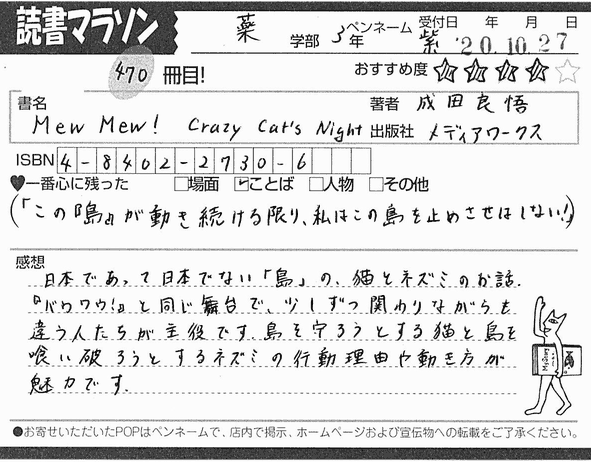 読書マラソン
薬 学部 3年 ペンネーム 紫 受付日 年 月 日
'20.10.27
470 冊目! おすすめ度 ★★★★☆
書名 著者 成田良悟
Mew Mew! Crazy Cat's Night 出版社 メディアワークス
ISBN 4-8402-2730-6
♥一番心に残った □場面 ☑ことば □人物 □その他
(「この『島』が動き続ける限り、私はこの島を止めさせはしない!」)
感想
日本であって日本でない「島」の、猫とネズミのお話.
『バウワウ!』と同じ舞台で、少しずつ関わりながらも
違う人たちが主役です.島を守ろうとする猫と島を
喰い破ろうとするネズミの行動理由や動き方が
魅力です.
●お寄せいただいたPOPはペンネームで、店内で掲示、ホームページおよび宣伝物への転載をご了承ください。